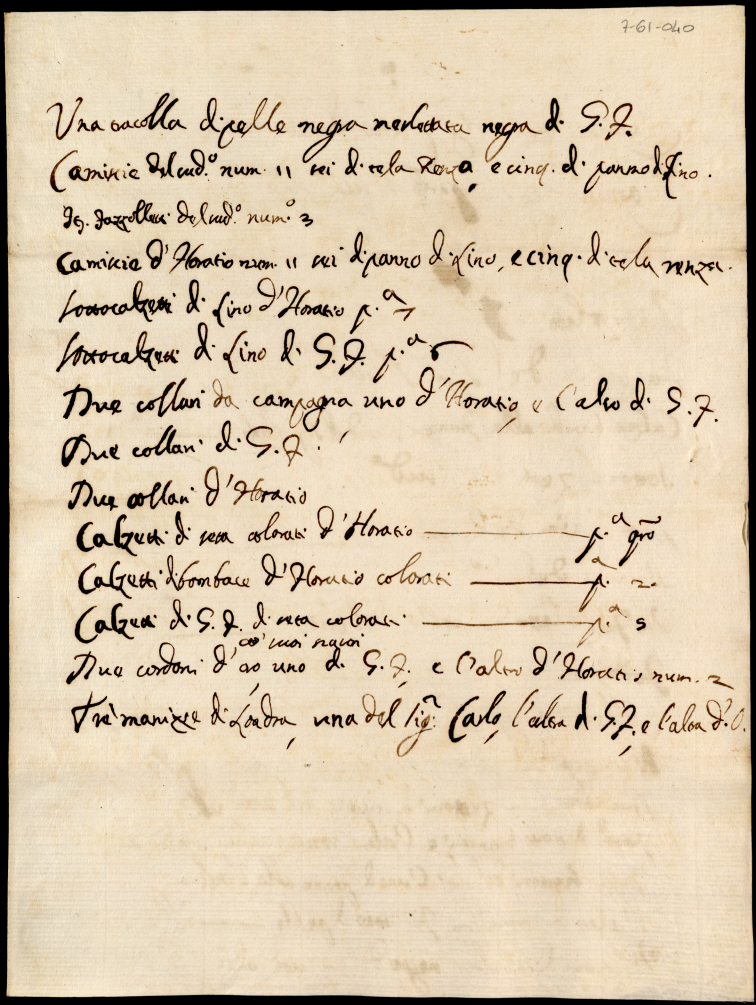 7-61-040
Una tacolla di pelle negra merlettata negra di G. F.
Camicie del sud.º num. 11 sei di tela Renza, e cinq. di panno di Lino.
Fazzolletti del sud.º num.º 3
Camicie d'Horatio num. 11 sei di panno di Lino, e cinq. di tela renza.
sottocalzetti di Lino d'Horatio p.ª 7
sottocalzetti di Lino di G. F. p.ª 6
Due collari da campagna uno d'Horatio, e l'altro di G. F.
Due collari di G. F.
Due collari d'Horatio
Calzetti di seta colorati d'Horatio p.ª qrõ
Calzetti di bombace d'Horatio colorati p.ª 2
Calzetti di G. F. di seta colorati p.ª 5
co' suoi
Due cordoni d'oro uno di G. F., e l'altro d'Horatio num. 2
Trè manizze di Londra, una del sig.r Carlo, l'altra di G. F., e l'altra d'O.